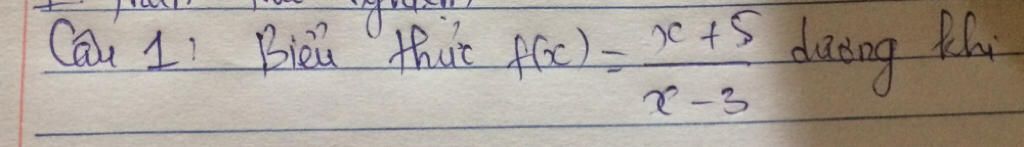 Câu 1: Biểu thức f(x) = x + 5 / x - 3 dương khi